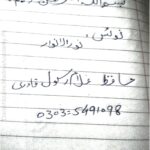 نوٹس :
نور الانوار
حافظ غلام رسول قادری
0303-5491098